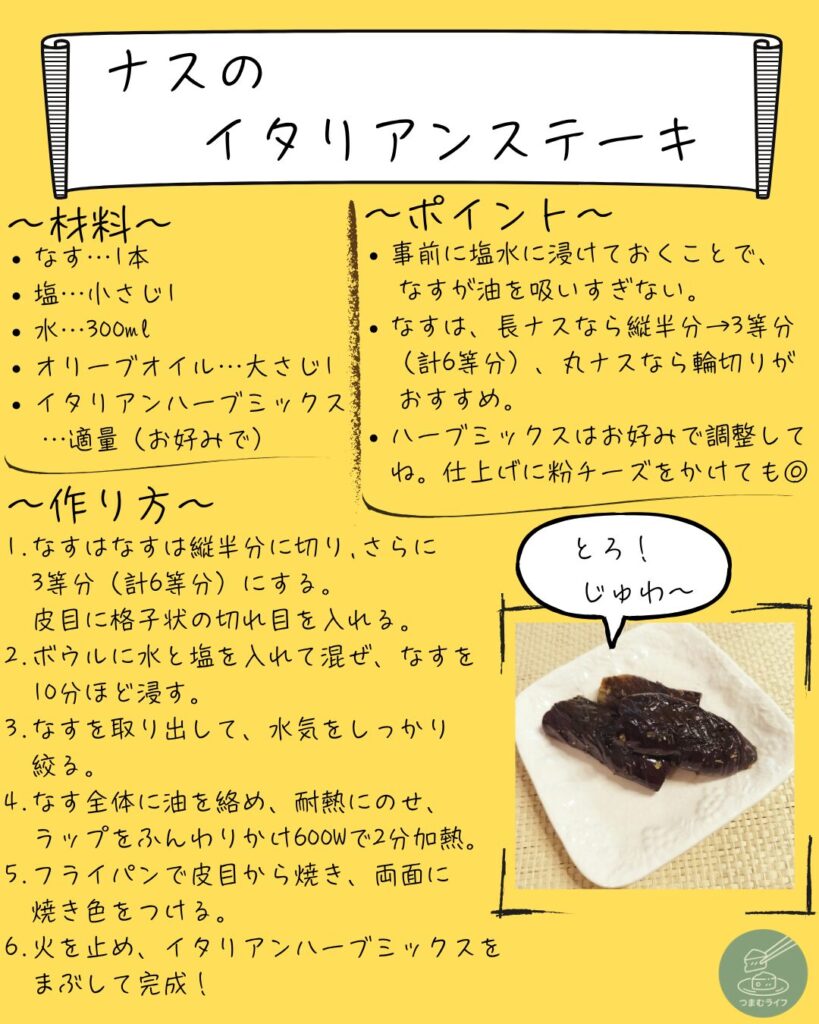 ナスの
イタリアンステーキ
〜材料〜
• なす…1本
• 塩…小さじ1
• 水…300ml
• オリーブオイル…大さじ1
• イタリアンハーブミックス
…適量（お好みで）
〜ポイント〜
• 事前に塩水に浸けておくことで、
なすが油を吸いすぎない。
• なすは、長ナスなら縦半分→3等分
（計6等分）、丸ナスなら輪切りが
おすすめ。
• ハーブミックスはお好みで調整して
ね。仕上げに粉チーズをかけても◎
〜作り方〜
1. なすはなすは縦半分に切り、さらに
3等分（計6等分）にする。
皮目に格子状の切れ目を入れる。
2. ボウルに水と塩を入れて混ぜ、なすを
10分ほど浸す。
3. なすを取り出して、水気をしっかり
絞る。
4. なす全体に油を絡め、耐熱にのせ、
ラップをふんわりかけ600Wで2分加熱。
5. フライパンで皮目から焼き、両面に
焼き色をつける。
6. 火を止め、イタリアンハーブミックスを
まぶして完成！
とろ！
じゅわ〜
つまむライフ